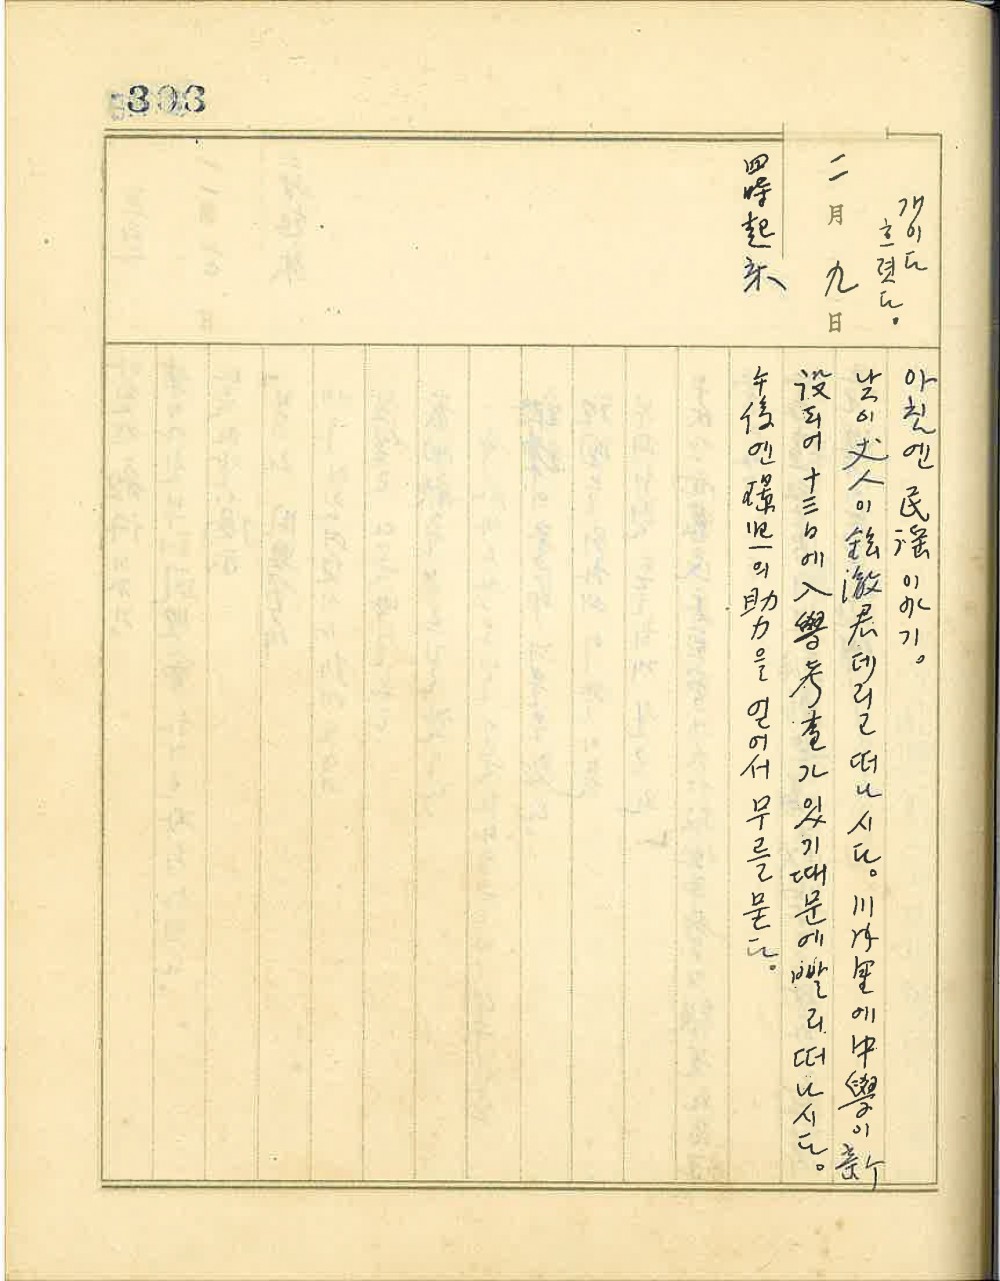 303
개이다
흐렸다。
二月九日
四時起床
아침엔 民謠 이야기。
낮이 丈人이 鉉澈君 데리고 떠나시다。川內里에 中學이 新
設되어 十三日에 入學考査가 있기 때문에 빨리 떠나시다。
午後엔 璟兄의 助力을 얻어서 무를 묻다。